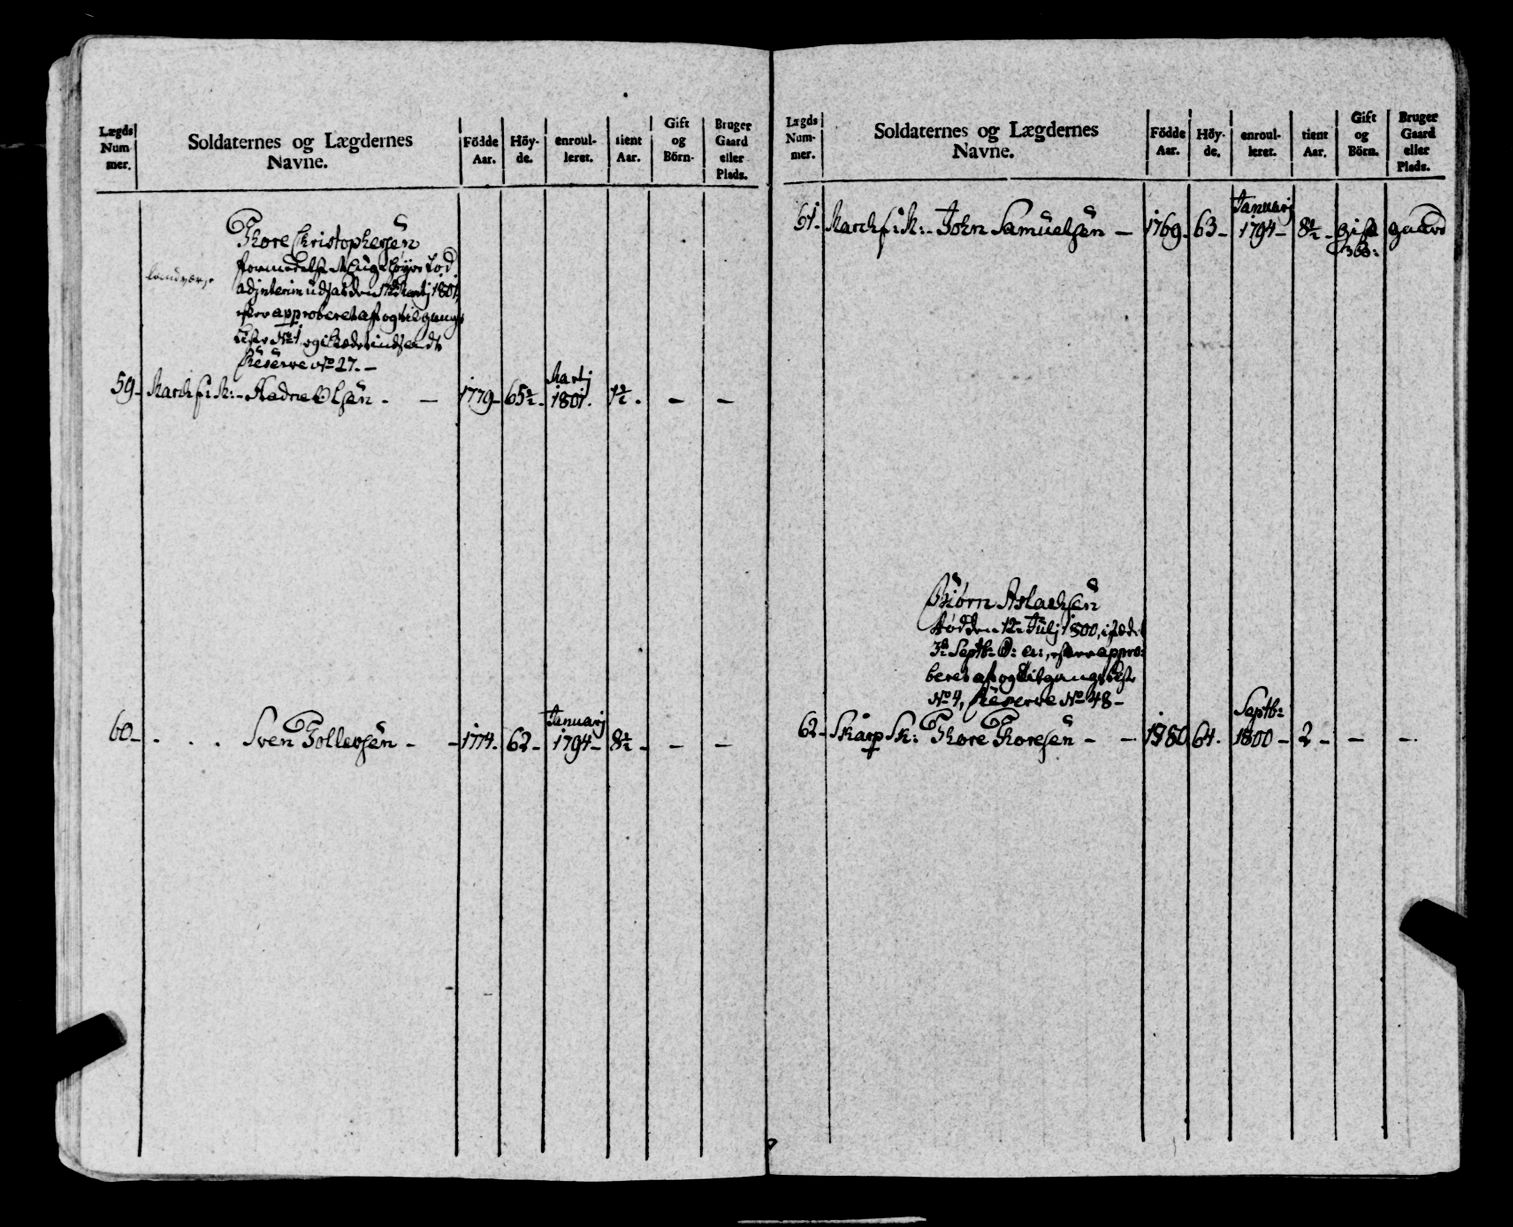 Lægds Num- mer.
Soldaternes og Lægdernes Navne.
Födde Aar.
Höy- de.
enroul- leret.
tient Aar.
Gift og Börn.
Bruger Gaard eller Plads.
Thore Christophersen
landværn
adjnterim udsat den 12te Martj 1801,
efter approberet af og tilgangs
Liste No 1 og i stædet indsendt
Reserve No 27. –
59 – March: s: K: – Aadne Olsen – – 1779 – 65½ – Martj 1801. 1½ . – –
60 – . . . Sven Tollevsen – – 1774. 62 – Januarj 1794 – 8½ – – –
Lægds Num- mer.
Soldaternes og Lægdernes Navne.
Födde Aar.
Höy- de.
enroul- leret.
tient Aar.
Gift og Börn.
Bruger Gaard eller Plads.
61. March: s: K: – John Samuelsen – 1769 – 63 – Januarj 1794 – 8½ – gift 3 B: gaard
Biörn Aslachsen
död den 12te Julj 1800, i stædet
3de Septbr: d: a:, efter appro-
beret af og tilgangs Liste
No 4, Reserve No 48 –
62 – Skarp Sk: Thore Thoresen – – 1780 64. Septbr: 1800 – 2 – – –.